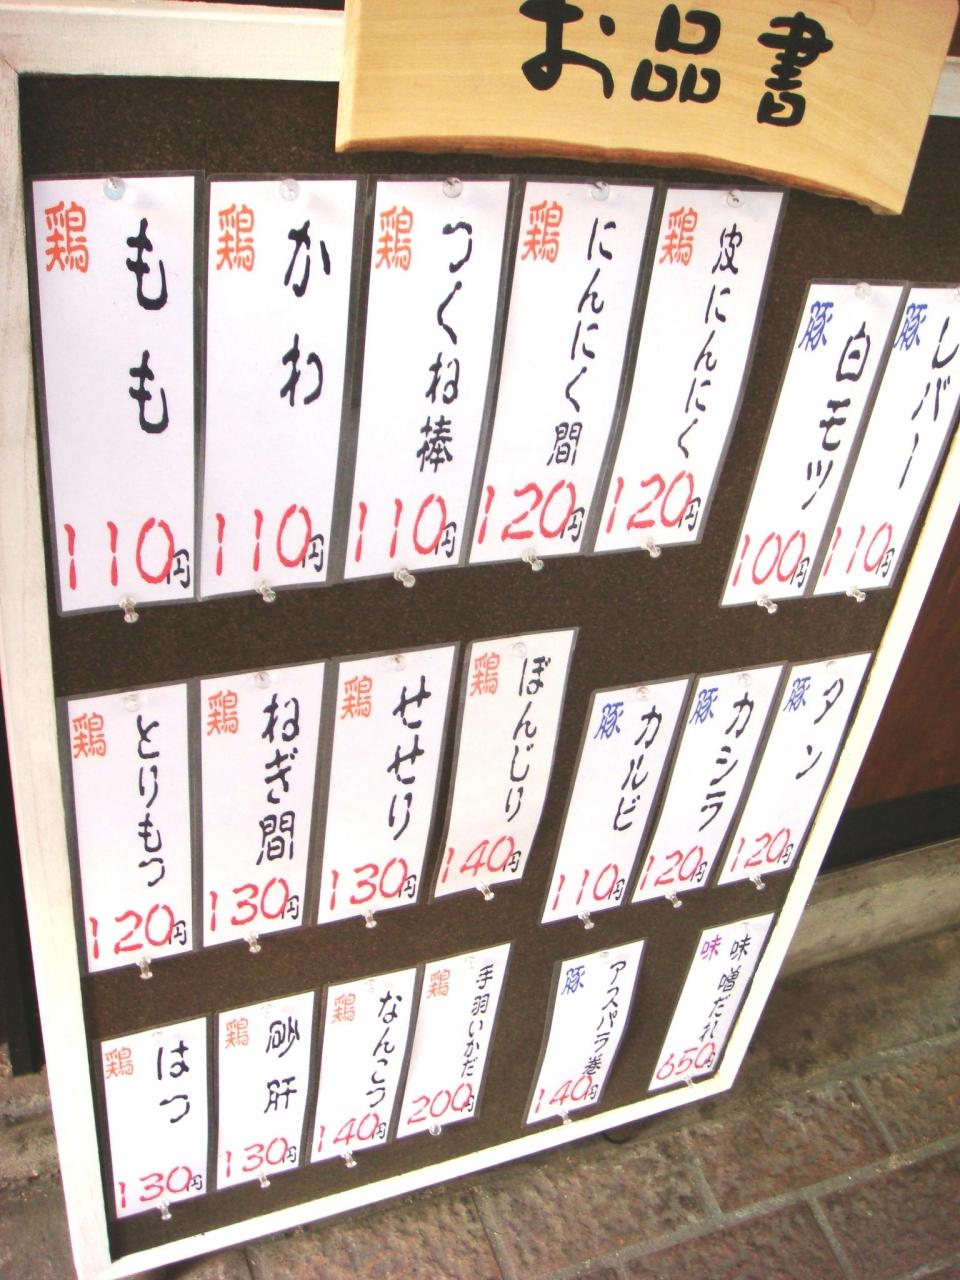 お品書
鶏 もも 110円
鶏 かわ 110円
鶏 つくね棒 110円
鶏 にんにく間 120円
鶏 皮にんにく 120円
豚 白モツ 100円
豚 レバー 110円
鶏 とりもつ 120円
鶏 ねぎ間 130円
鶏 せせり 130円
鶏 ぼんじり 140円
豚 カルビ 110円
豚 カシラ 120円
豚 タン 120円
鶏 はつ 130円
鶏 砂肝 130円
鶏 なんこつ 140円
鶏 手羽いかだ 200円
豚 アスパラ巻 140円
味 味噌だれ 650円